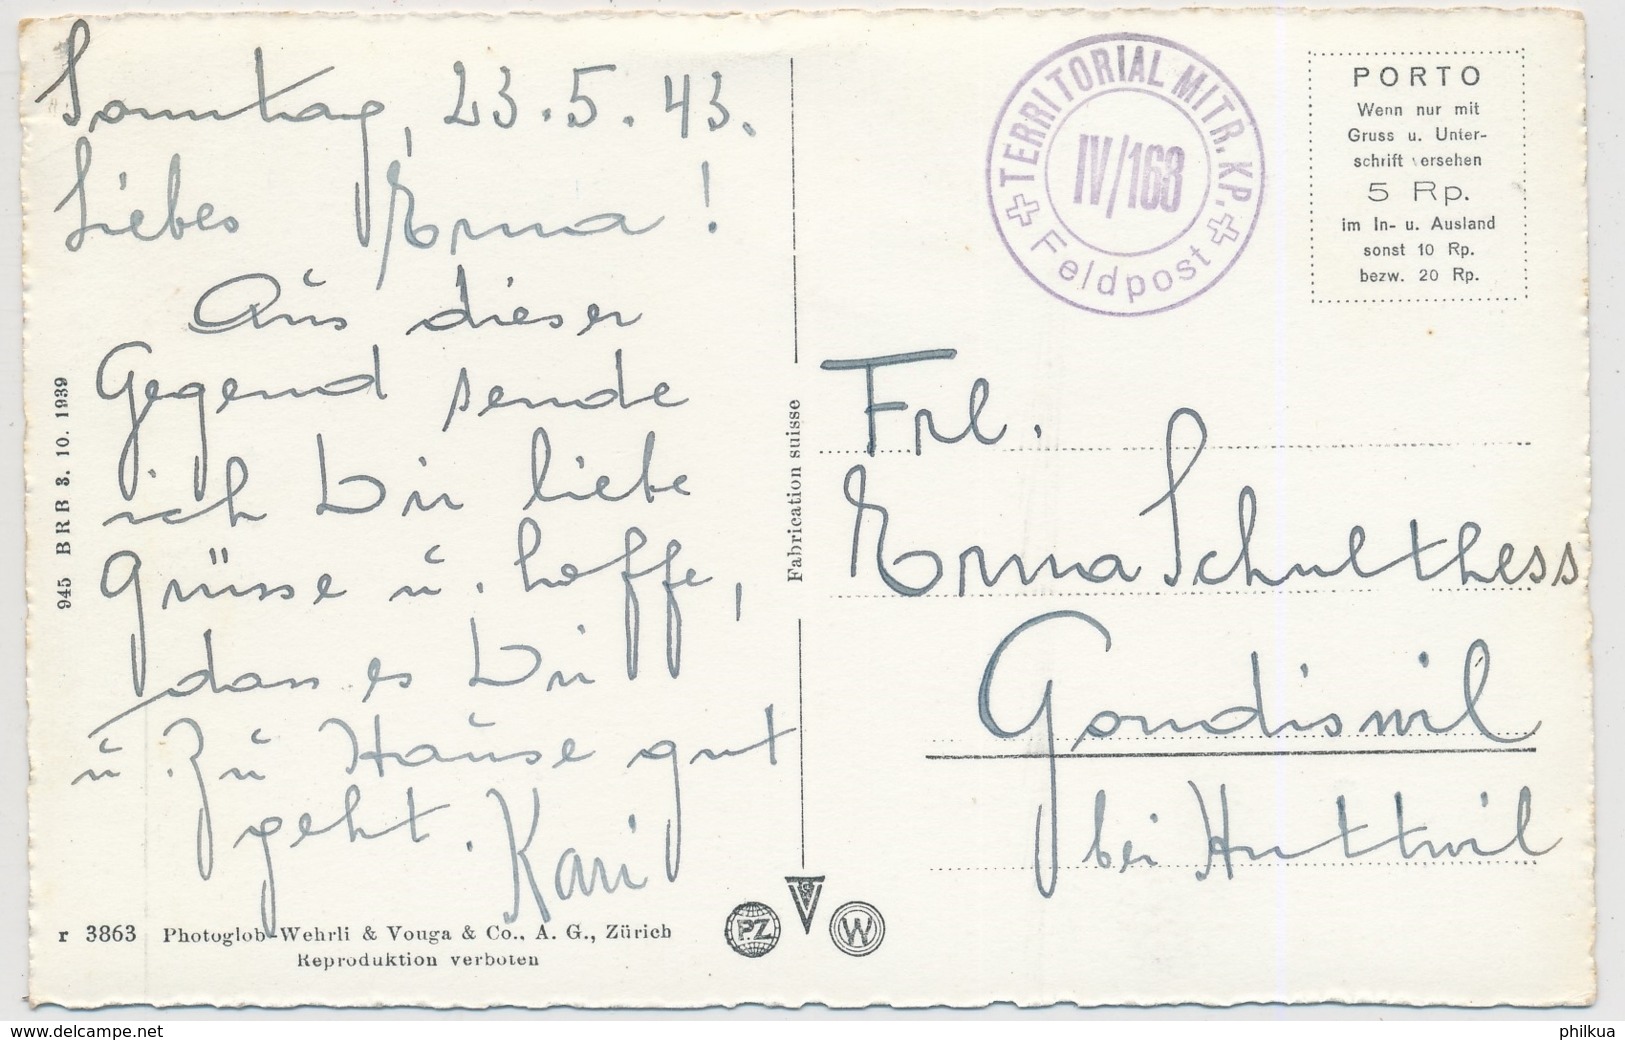 Sonntag, 23.5.43.
Liebes Erna!
Aus dieser
Gegend sende
ich Dir liebe
Grüsse u. hoffe,
dass es Dir
u. zu Hause gut
geht. Kari
945 BRB 3. 10. 1939
r 3863 Photoglob-Wehrli & Vouga & Co., A. G., Zürich
Reproduktion verboten
Fabrication suisse
P.Z
V
W
TERRITORIAL MITR. KP.
IV/163
Feldpost
PORTO
Wenn nur mit
Gruss u. Unter-
schrift versehen
5 Rp.
im In- u. Ausland
sonst 10 Rp.
bezw. 20 Rp.
Frl.
Erna Schulthess
Gondiswil
bei Huttwil
www.delcampe.net
philkua